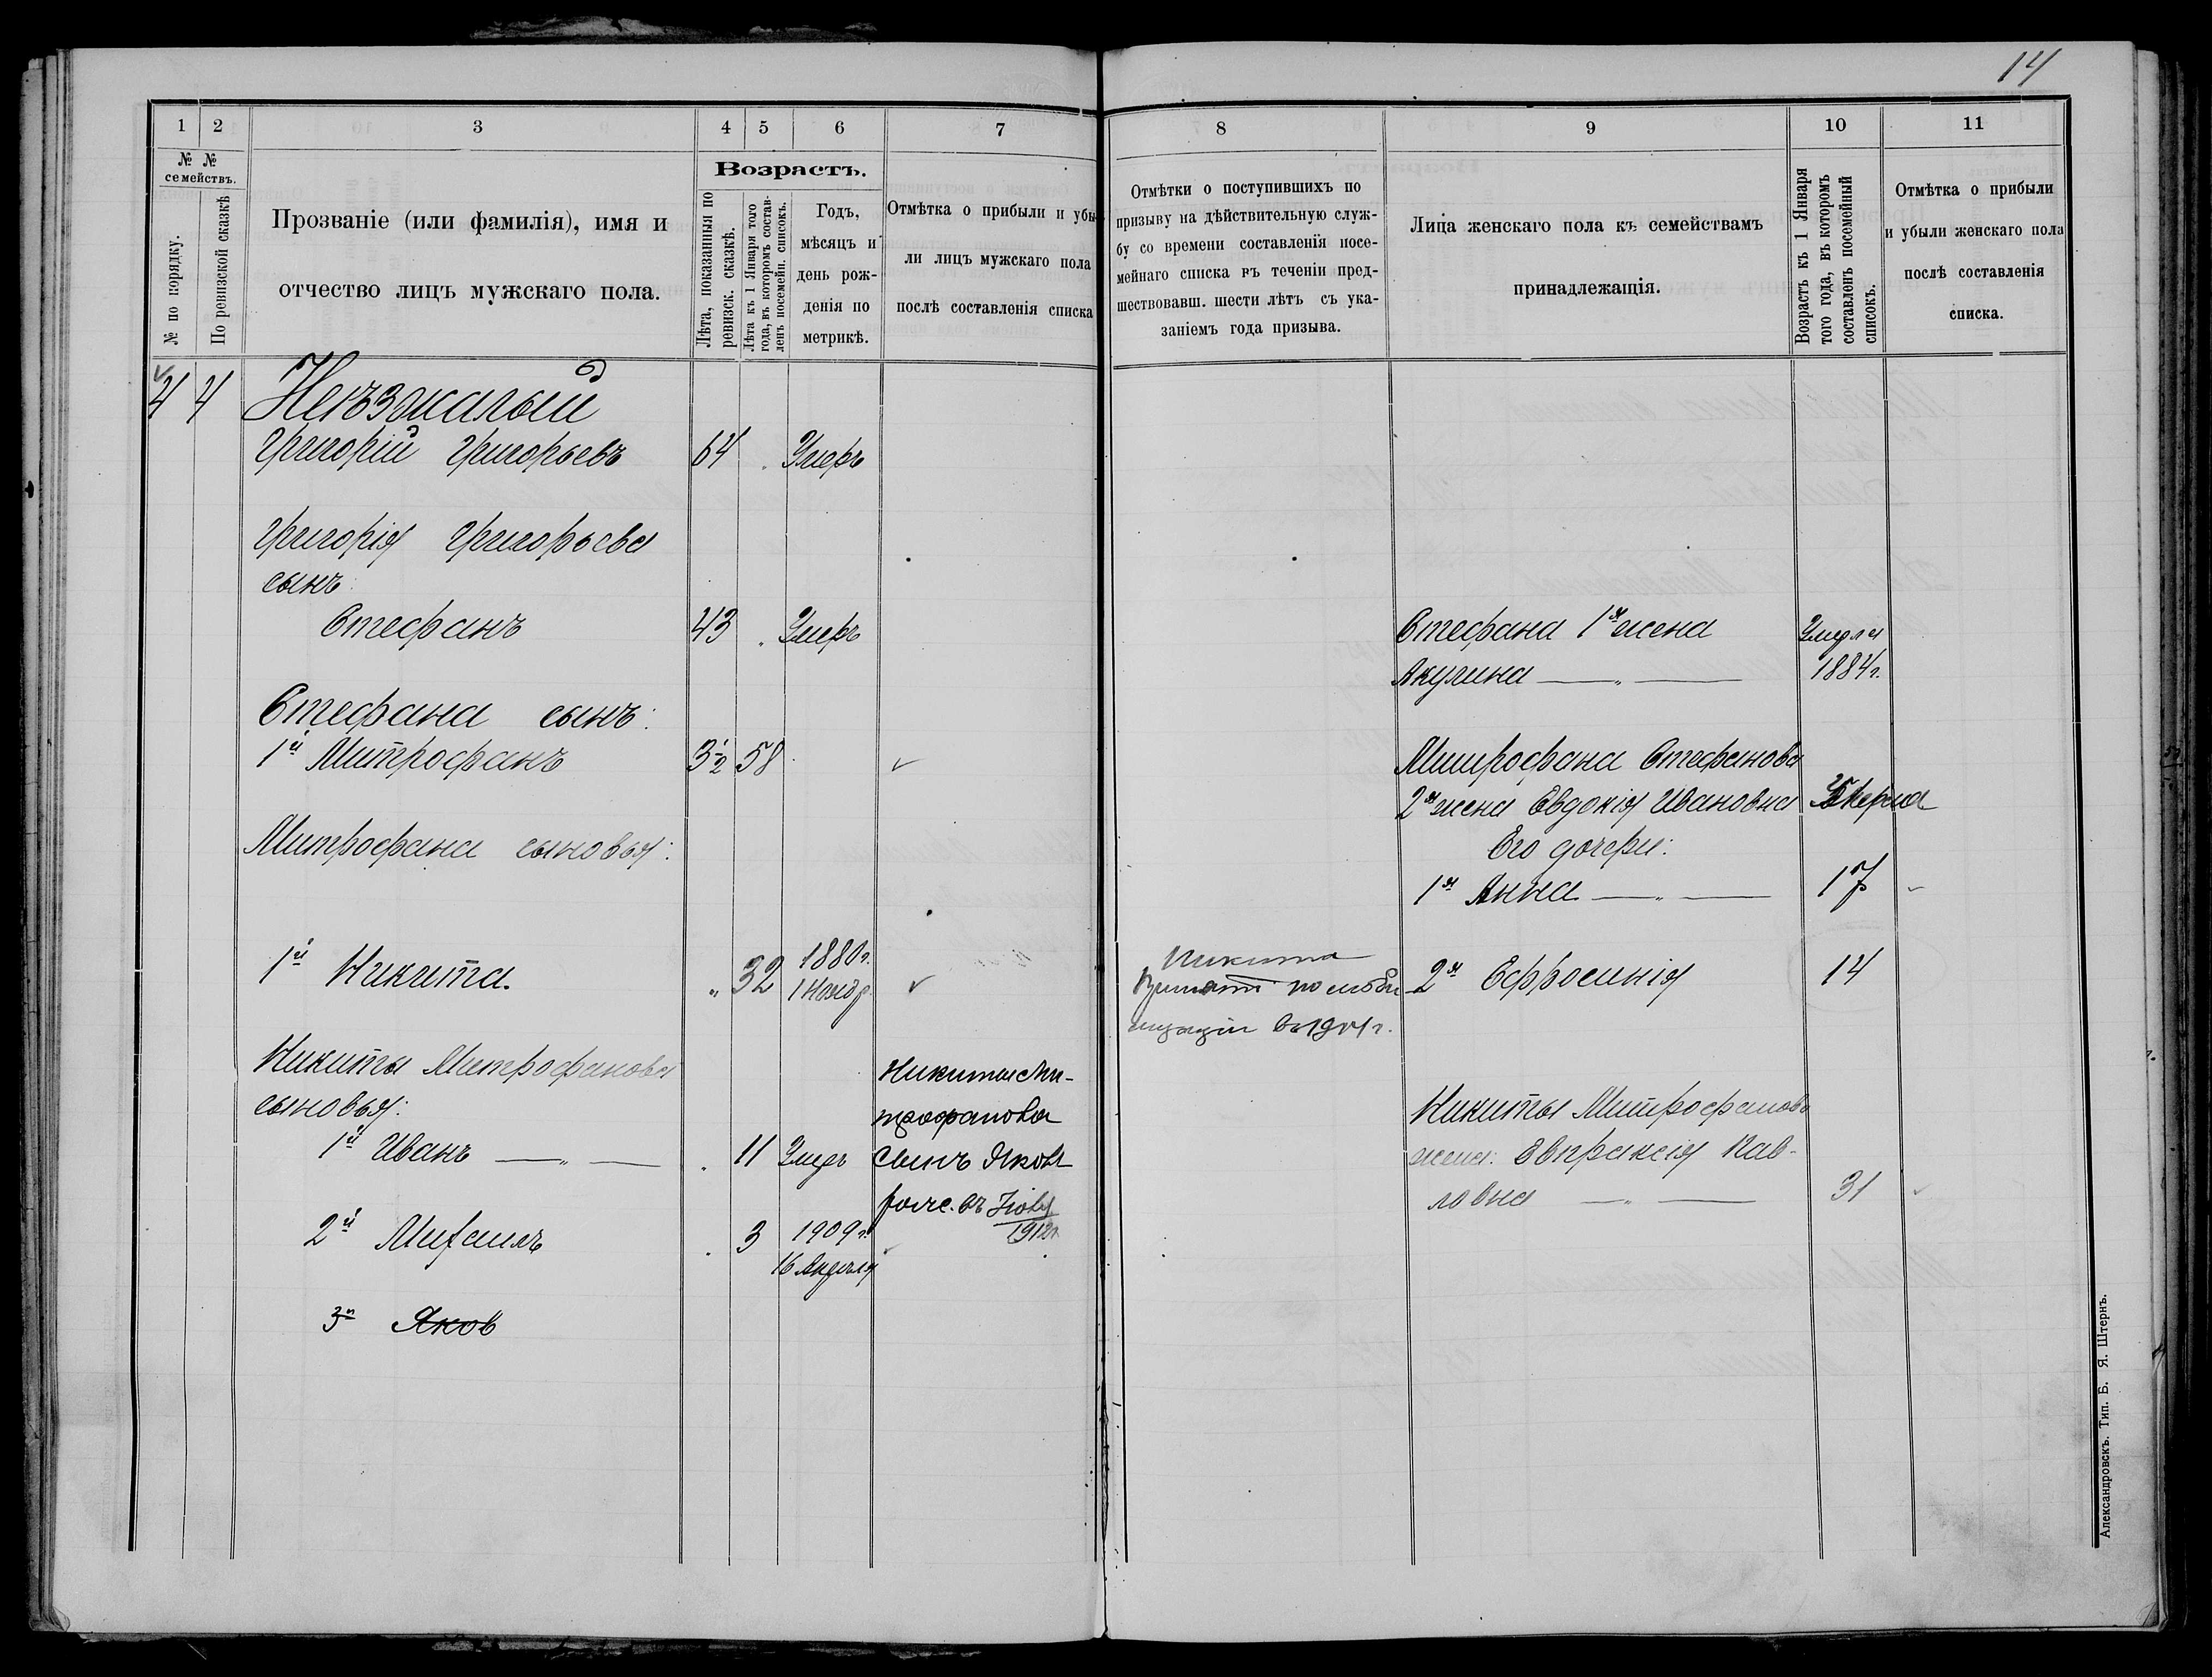 14
1 2 3 4 5 6 7
№ № семействъ.
№ по порядку.
По ревизской сказкѣ
Прозваніе (или фамилія), имя и
отчество лицъ мужскаго пола.
Возрастъ.
Лѣта, показанныя по
ревизск. сказкѣ.
Лѣта къ 1 Января того
года, въ которомъ состав-
ленъ посемейн. списокъ.
Годъ,
мѣсяцъ и
день рож-
денія по
метрикѣ.
Отмѣтка о прибыли и убы
ли лицъ мужскаго пола
послѣ составленія списка
4 4 Неѣзжалый
Григорій Григорьевъ 64 Умеръ
Григорія Григорьева
сынъ:
Стефанъ 43 Умеръ
Стефана сынъ:
1й Митрофанъ 3½ 58
Митрофана сыновья:
1й Никита. " 32 1880г.
1 Ноябр.
Никиты Митрофанова
сыновья:
1й Иванъ — " — 11 Умеръ
2й Михаилъ 3 1909г.
16 Апрѣля
3й Яков
Никиты Ми-
трофанова
сынъ Яковъ
рожд. въ
1912г.
8 9 10 11
Отмѣтки о поступившихъ по
призыву на дѣйствительную служ-
бу со времени составленія посе-
мейнаго списка въ теченіи пред-
шествовавш. шести лѣтъ съ ука-
заніемъ года призыва.
Лица женскаго пола къ семействамъ
принадлежащія.
Возрастъ къ 1 Января
того года, въ которомъ
составленъ посемейный
списокъ.
Отмѣтка о прибыли
и убыли женскаго пола
послѣ составленія
списка.
Стефана 1я жена Умерла
Акулина — " — 1884г.
Митрофана Стефанова
2я жена Евдокія Ивановна
Его дочери:
1я Анна — " — 17
Никита
Принятъ по моби
лизаціи въ 1904г.
2я Ефросинія 14
Никиты Митрофанова
жена: Евпраксія Пав-
ловна — " — 31
Александровскъ. Тип. Б. Я. Штернъ.